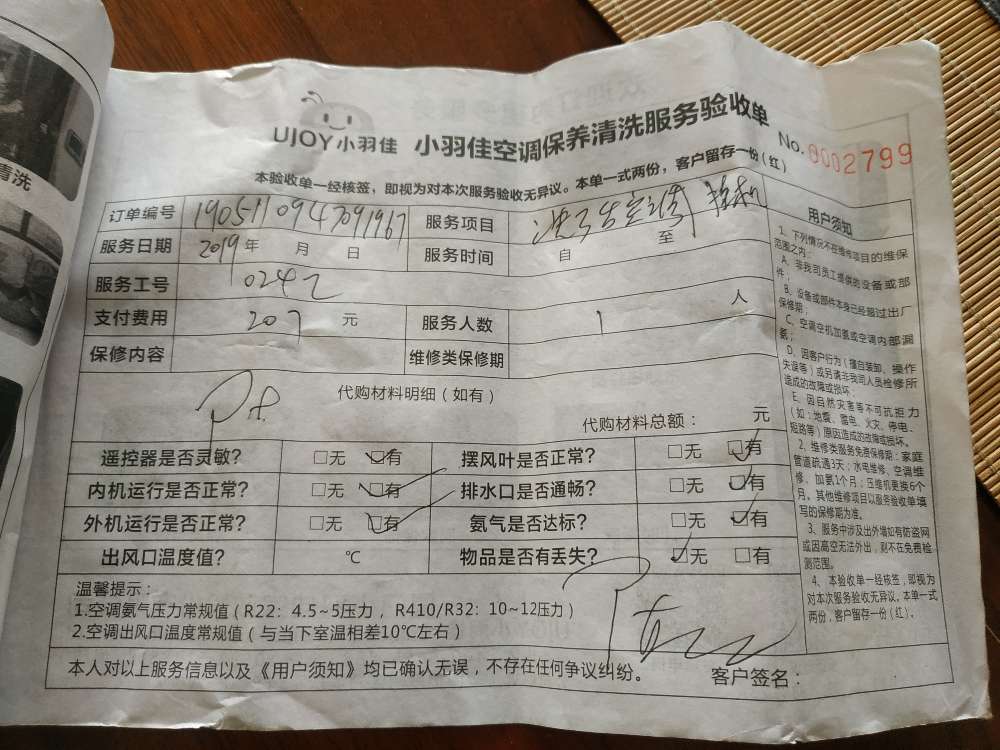 清洗
UJOY小羽佳 小羽佳空调保养清洗服务验收单
No. 0002799
本验收单一经核签，即视为对本次服务验收无异议。本单一式两份，客户留存一份（红）
订单编号 190511094709196 服务项目
服务日期 2019年 月 日 服务时间 自 至
服务工号 0242
支付费用 207 元 服务人数 1 人
保修内容 维修类保修期
代购材料明细（如有）
代购材料总额： 元
遥控器是否灵敏？ □无 □有 摆风叶是否正常？ □无 □有
内机运行是否正常？ □无 □有 排水口是否通畅？ □无 □有
外机运行是否正常？ □无 □有 氨气是否达标？ □无 □有
出风口温度值？ ℃ 物品是否有丢失？ 无 □有
温馨提示：
1.空调氨气压力常规值（R22：4.5~5压力，R410/R32：10~12压力）
2.空调出风口温度常规值（与当下室温相差10℃左右）
本人对以上服务信息以及《用户须知》均已确认无误，不存在任何争议纠纷。
客户签名：
用户须知
1、下列情况不在维修项目的维保
范围之内：
A、非我司员工提供的设备或部
件；
B、设备或部件本身已经超过出厂
保修期；
C、空调空机加氨或空调内部漏
氨；
D、因客户行为（擅自装卸、操作
失误等）或另请非我司人员检修所
造成的故障或损坏；
E、因自然灾害等不可抗拒力
（如：地震、雷电、火灾、停电、
短路等）原因造成的故障或损坏。
2、维修类服务免费保修期：家庭
管道疏通3天；水电维修、空调维
修、加氨1个月；压缩机更换6个
月。其他维修项目以服务验收单填
写的保修期为准。
3、服务中涉及出外墙如有防盗网
或因高空无法外出，则不在免费检
测范围。
4、本验收单一经核签，即视为
对本次服务验收无异议。本单一式
两份，客户留存一份（红）。